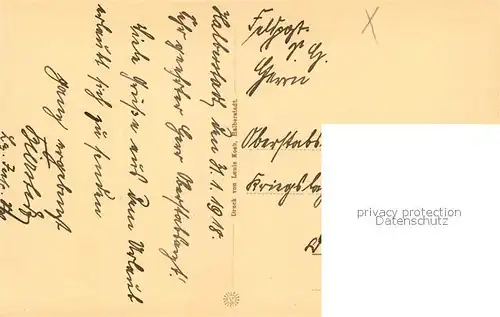 Halberstadt, den 31.1.1918.
Sehr geehrter Herr Oberstabsarzt!
Viele Grüße aus dem Urlaub
erlaubt sich zu senden
ganz ergebenst
Druck von Louis Koch, Halberstadt.
Feldpost
Herrn
Oberstabs
Kriegsla
privacy protection
VERANDAM